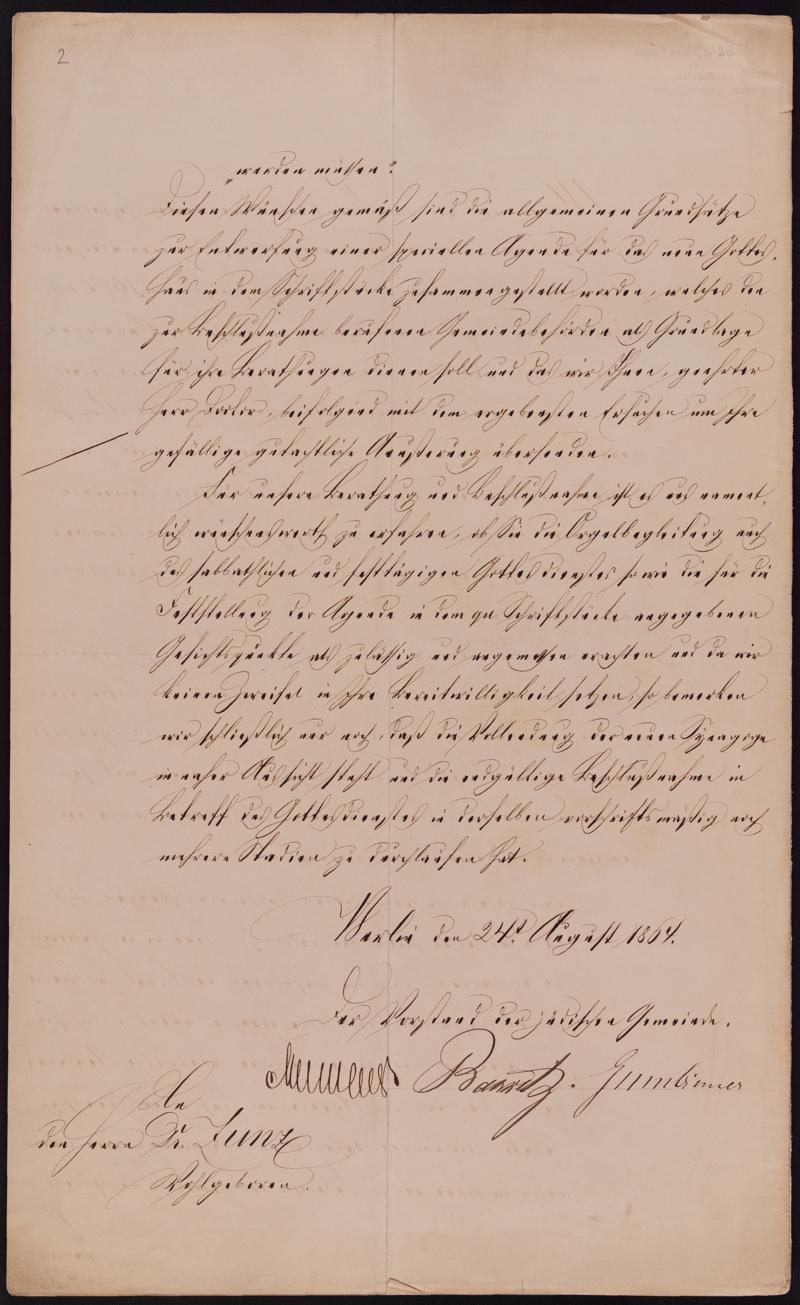 2
„werden müssen."
Diesen Wünschen gemäß sind die allgemeinen Grundsätze
zur Entwerfung einer speciellen Agende für das neue Gottes-
haus in dem Schriftstücke zusammengestellt worden, welches den
zur Beschlußnahme berufenen Gemeindebehörden als Grundlage
für ihre Berathungen dienen soll und das wir Ihnen, geehrter
Herr Doctor, beifolgend mit dem ergebensten Ersuchen um Ihre
gefällige gutachtliche Aeußerung übersenden.
Für unsere Berathung und Beschlußnahme ist es uns nament-
lich wünschenswerth zu erfahren, ob Sie die Orgelbegleitung auch
des sabbathlichen und festtägigen Gottesdienstes so wie die für die
Feststellung der Agende in dem qu Schriftstücke angegebenen
Gesichtspunkte als zulässig und angemessen erachten und da wir
keinen Zweifel in Ihre Bereitwilligkeit setzen, so bemerken
wir schließlich nur noch, daß die Vollendung der neuen Synagoge
in naher Aussicht steht und die endgültige Beschlußnahme in
Betreff des Gottesdienstes in derselben vorschriftsmäßig noch
mehrere Stadien zu durchlaufen hat.
Berlin den 24t. August 1864.
Der Vorstand der jüdischen Gemeinde.
Gumbinner
An
den Herrn Dr. Zunz
Wohlgeboren.